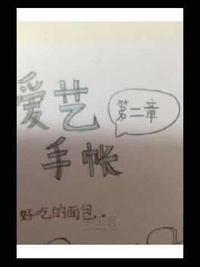 爱艺
第二章
手帐
好吃的面包..